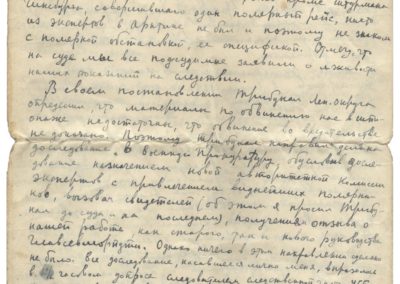 кроме штурмана
совершившего один полярный рейс, никто
из экспертов в Арктике не был и поэтому не знаком
с полярной обстановкой, ее спецификой. Отмечу, что
на суде мы все подсудимые заявили о лживости
наших показаний на следствии.
В своем постановлении Трибунал Лен. округа
определил что материалы по обвинению нас в шпи-
онаже недостаточны, что обвинение во вредительстве
не доказано. Поэтому трибунал направил дело на
доследование в Военную Прокуратуру обусловив досле-
дование назначением новой авторитетной комиссии
экспертов с привлечением виднейших полярни-
ков, вызовом свидетелей (об этом я просил Трибу-
нал до суда и на последнем), получения отзыва о
нашей работе как старого, так и нового руководства
Главсевморпути. Однако ничего в этом направлении сделано
не было. Все доследование, касавшееся лично меня, выразилось
в часовом допросе следователем